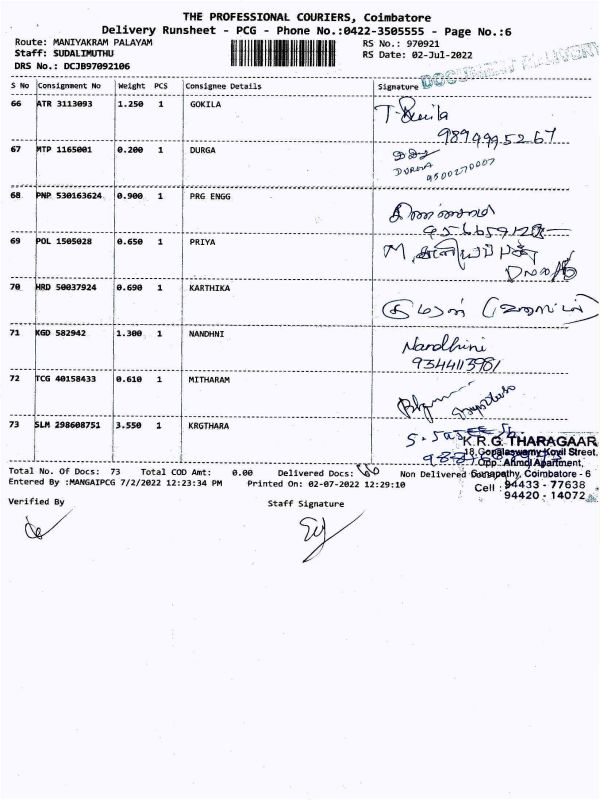 THE PROFESSIONAL COURIERS, Coimbatore
Delivery Runsheet - PCG - Phone No.:0422-3505555 - Page No.:6
Route: MANIYAKRAM PALAYAM RS No.: 970921
Staff: SUDALIMUTHU RS Date: 02-Jul-2022
DRS No.: DCJB97092106
S No Consignment No Weight PCS Consignee Details Signature
66 ATR 3113093 1.250 1 GOKILA
67 MTP 1165001 0.200 1 DURGA
DURGA
9500270007
68 PNP 530163624 0.900 1 PRG ENGG
69 POL 1505028 0.650 1 PRIYA
70 HRD 50037924 0.690 1 KARTHIKA
71 KGD 582942 1.300 1 NANDHNI
Nandhini
9344113981
72 TCG 40158433 0.610 1 MITHARAM
73 SLM 298608751 3.550 1 KRGTHARA
K.R.G. THARAGAAR
18, Gopalaswamy Kovil Street,
Ganapathy, Coimbatore - 6
Cell : 94433 - 77638
94420 - 14072
Total No. Of Docs: 73 Total COD Amt: 0.00 Delivered Docs: 66 Non Delivered Docs:
Entered By :MANGAIPCG 7/2/2022 12:23:34 PM Printed On: 02-07-2022 12:29:10
Verified By Staff Signature